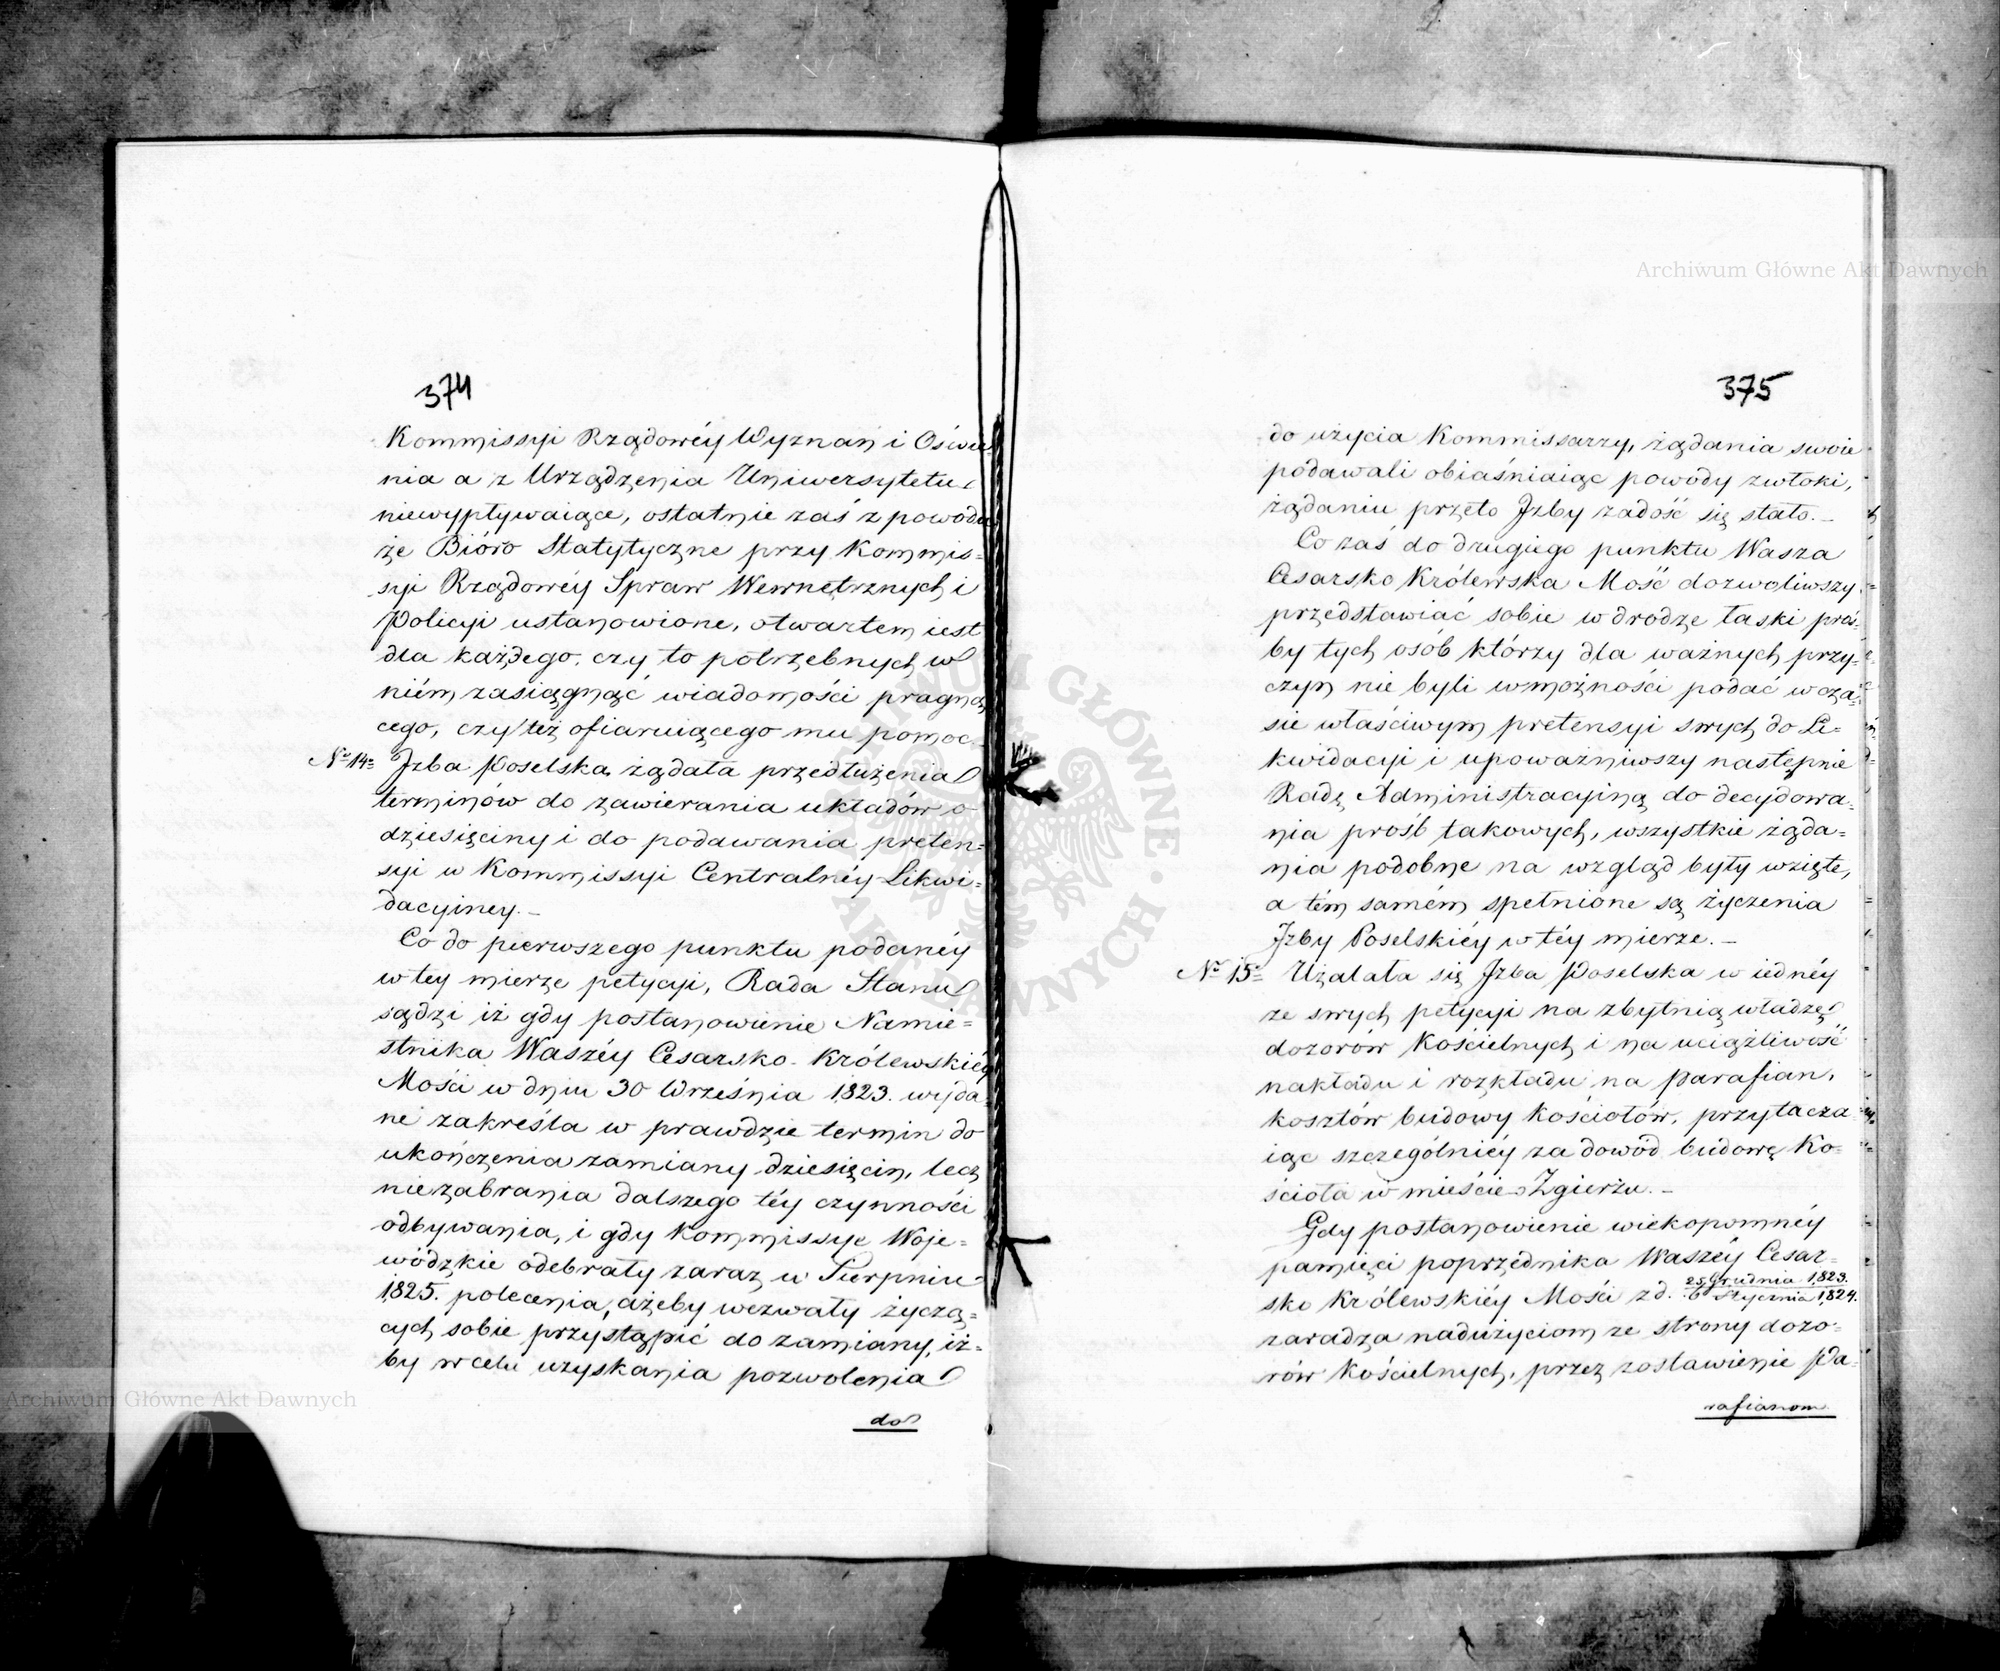 374
Kommissyi Rządowéy Wyznań i Oświe
nia a z Urządzenia Uniwersytetu
niewypływaiące, ostatnie zaś z powodu
że Bióro Statytyczne przy Kommis=
syi Rządowéy Spraw Wewnętrznych i
Policyi ustanowione, otwartem iest
dla każdego, czy to potrzebnych w
niém zasiągnąć wiadomości pragną
cego, czy też ofiaruiącego mu pomoc.
No 14= Izba Poselska żądała przedłużenia
terminów do zawierania układów o
dziesięciny i do podawania preten=
syi w Kommissyi Centralnéy Likwi=
dacyiney.—
Co do pierwszego punktu podanéy
w tey mierze petycyi, Rada Stanu
sądzi iż gdy postanowienie Namie=
stnika Waszéy Cesarsko-Królewskiéy
Mości w dniu 30 Września 1823. wyda
ne zakréśla w prawdzie termin do
ukończenia zamiany dziesięcin, lecz
niezabrania dalszego téy czynności
odbywania, i gdy Kommissye Woje=
wódzkie odebrały zaraz w Sierpniu
1825. polecenia, ażeby wezwały życzą=
cych sobie przystąpić do zamiany, iż=
by w celu uzyskania pozwolenia
do
375
do użycia Kommissarzy, żądania swoie
podawali obiaśniaiąc powody zwłoki,
żądaniu przeto Izby zadość się stało.—
Co zaś do drugiego punktu Wasza
Cesarsko Królewska Mość dozwoliwszy
przedstawiać sobie w drodze łaski proś=
by tych osób którzy dla ważnych przy=
czyn nie byli w możności podać w cza=
sie właściwym pretensyi swych do Li=
kwidacyi i upoważniwszy następnie
Radę Administracyiną do decydowa=
nia prośb takowych, wszystkie żąda=
nia podobne na wzgląd były wzięte,
a tém samém spełnione są życzenia
Izby Poselskiéy w téy mierze.—
No 15= Użalała się Izba Poselska w iednéy
ze swych petycyi na zbytnią władzę
dozorów Kościelnych i na uciążliwość
nakładu i rozkładu na parafian,
kosztów budowy Kościołów, przytacza
iąc szczególniéy za dowód budowę Ko=
ścioła w mieście Zgierzu.—
Gdy postanowienie wiekopomnéy
pamięci poprzednika Waszéy Cesar=
sko Królewskiéy Mości z d. 25 Grudnia 1823.
6 Stycznia 1824.
zaradza nadużyciom ze strony dozo=
rów Kościelnych, przez zostawienie Pa=
rafianom
Archiwum Główne Akt Dawnych
Archiwum Główne Akt Dawnych